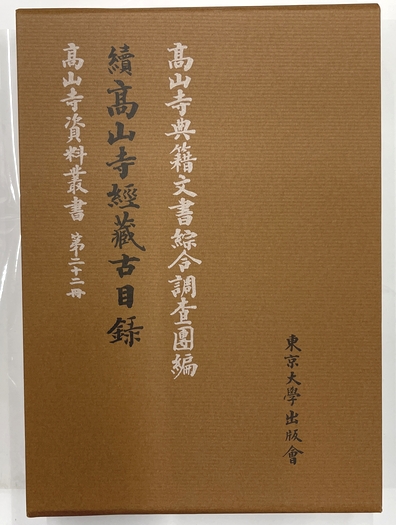 高山寺典籍文書綜合調査團編
續高山寺經藏古目録
高山寺資料叢書 第二十二冊
東京大學出版會